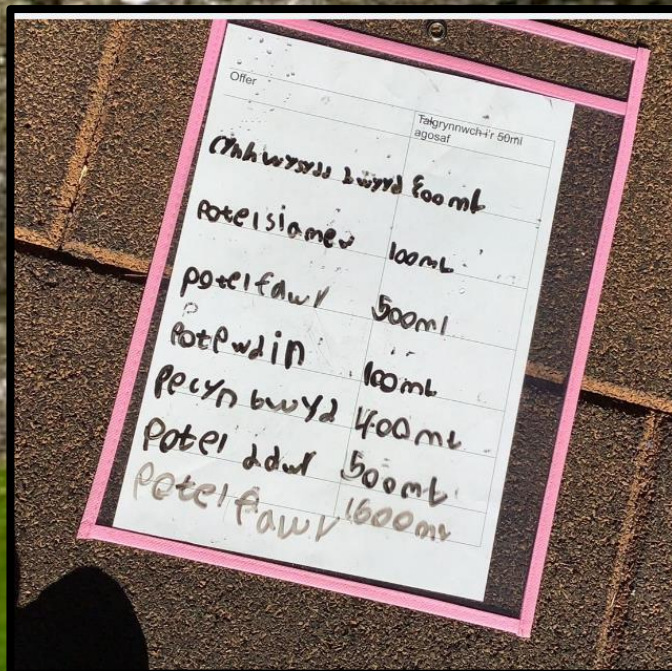 Offer
Talgrynnwch i'r 50ml
agosaf
bwyd 800mL
Potel siamew 100mL
potel fawr 500ml
Potpwdin 100mL
Pecyn bwyd 400mL
Potel ddwr 500mL
Potel fawr 1600mL